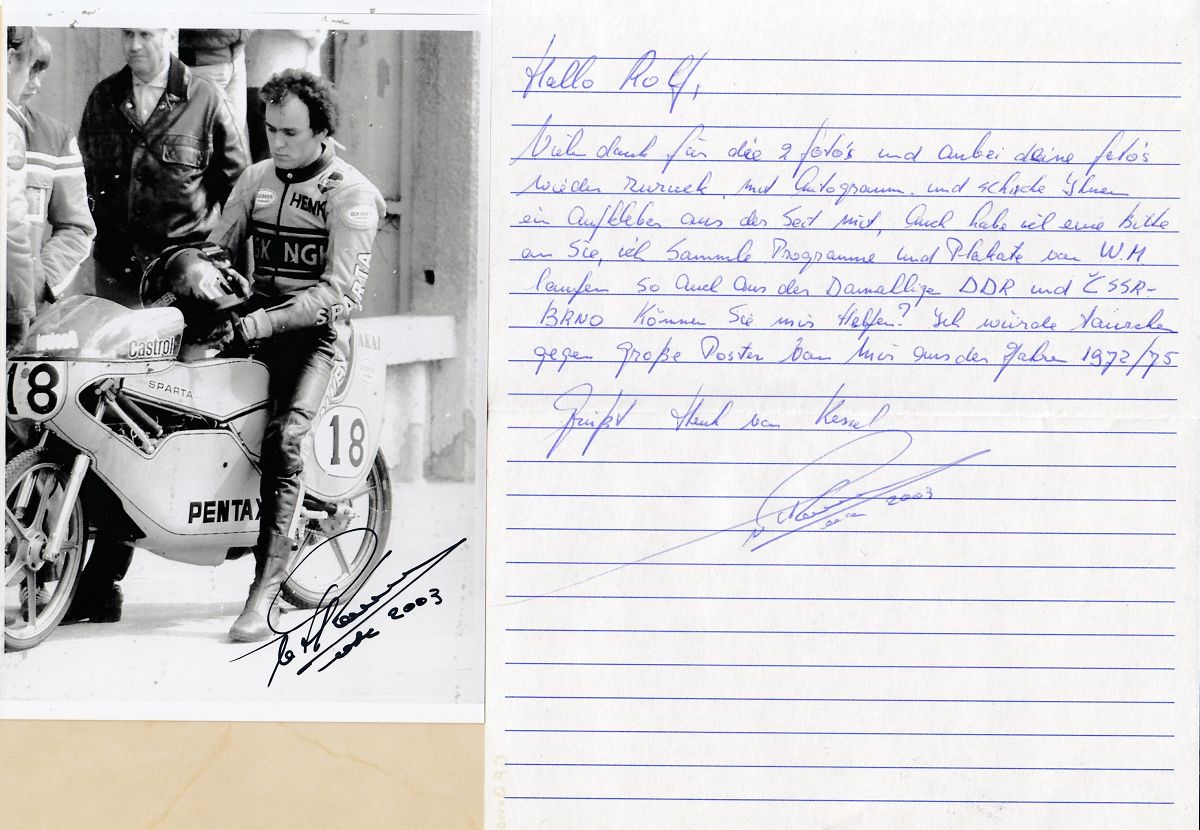 HENK
NGK
SPARTA
AKAI
Castrol
18
SPARTA
18
PENTAX
2003
Hallo Rolf,
Vielen dank für die 2 foto's und anbei deine foto's
wieder zuruck, mit Autogramm. und schicke Ihnen
ein Aufkleber aus der Seit mit, Auch habe ich eine Bitte
an Sie, ich Sammle Programme und Plakate von W.M
laufen so auch aus der Damallige DDR und ČSSR-
BRNO Können Sie mir Helfen? Ich würde tauschen
gegen große Poster von mir aus der Jahren 1972/75
Grüßt Henk van Kessel
2003